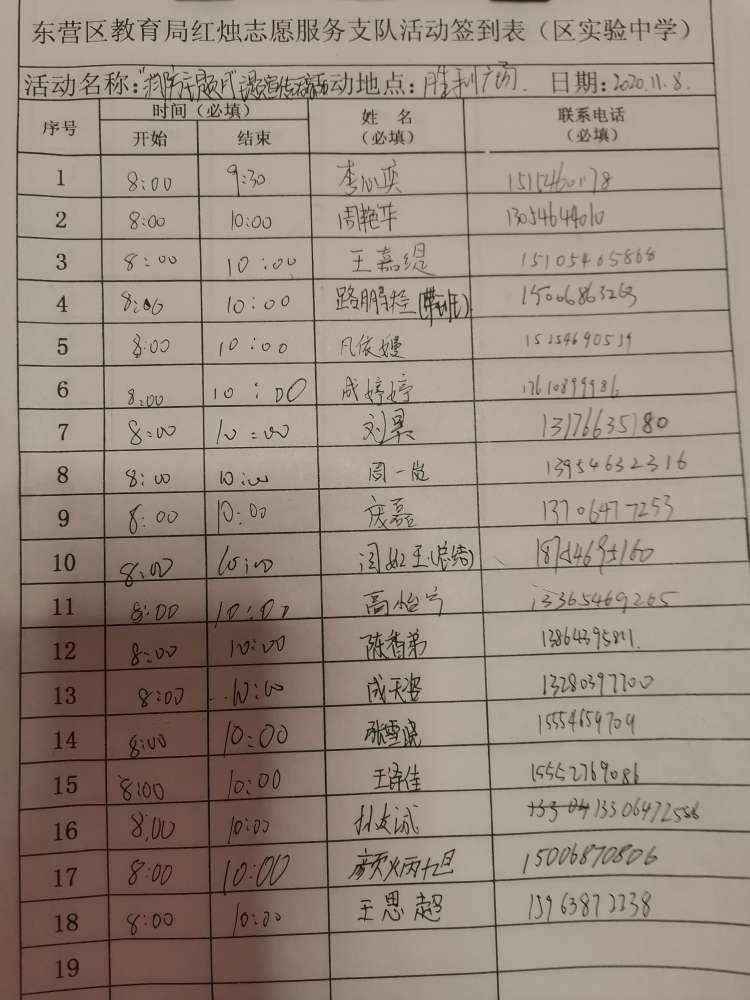 东营区教育局红烛志愿服务支队活动签到表（区实验中学）
活动名称：“消防主题月” 活动地点：胜利广场. 日期：2020.11.8.
序号 时间（必填） 姓名（必填） 联系电话（必填）
开始 结束
1 8:00 9:30 李心奕
2 8:00 10:00 周艳华 13054644010
3 8:00 10:00 王嘉缇 15105465868
4 8:00 10:00 (带班) 15006863263
5 8:00 10:00 凡依嫚 15254690539
6 8:00 10:00 成婷婷 17610899986
7 8:00 10:00 刘果 13176635780
8 8:00 10:00 周一岚 13954632316
9 8:00 10:00 庞磊 13706477253
10 8:00 10:00 闫如玉(总结)
11 8:00 10:00 高怡宁 13365469265
12 8:00 10:00 陈香弟 13864395811.
13 8:00 10:00 成天姿 13280397700
14 8:00 10:00 张雪晓 15554659709
15 8:00 10:00 王译佳 15552769086
16 8:00 10:00 孙友诚
17 8:00 10:00 颜炳旭 15006870806
18 8:00 10:00 王思超 15963872238
19